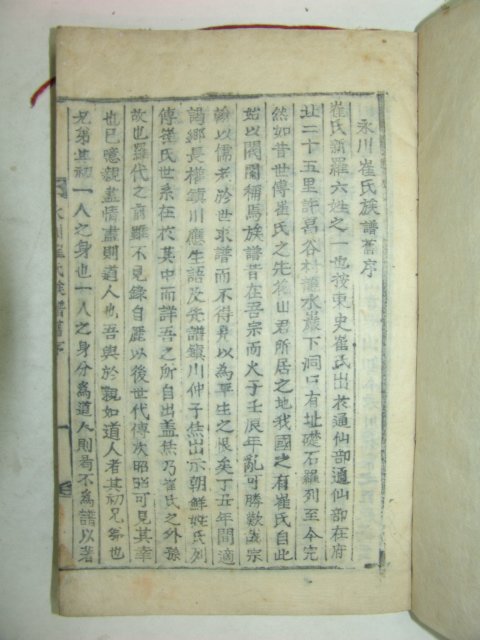 永川崔氏族譜舊序
崔氏新羅六姓之一也按東史崔氏出於通仙部通仙部在府
北二十五里許昌谷村 水巖下洞口有址礎石羅列至今完
然如昔世傳崔氏之先後山君所居之地我國之有崔氏自此
始以閥閱稱焉族譜昔在吾宗而火于壬辰年亂可勝歎哉宗
 以儒老於世求譜而不得見以為平生之恨矣丁丑年間適
謁鄉長權鎭川應生語及先譜鎭川仲子 出示朝鮮姓氏列
傳崔氏世系在於其中而詳吾之所自出盖 乃崔氏之外孫
故也羅代之前雖不見錄自麗以後世代傳次昭昭可見其幸
也已噫親盡情盡則道人也吾與於親如道人者其初兄弟也
兄弟其初一人之身也一人之身分為道人則焉不為譜以著
永川崔氏族譜舊序